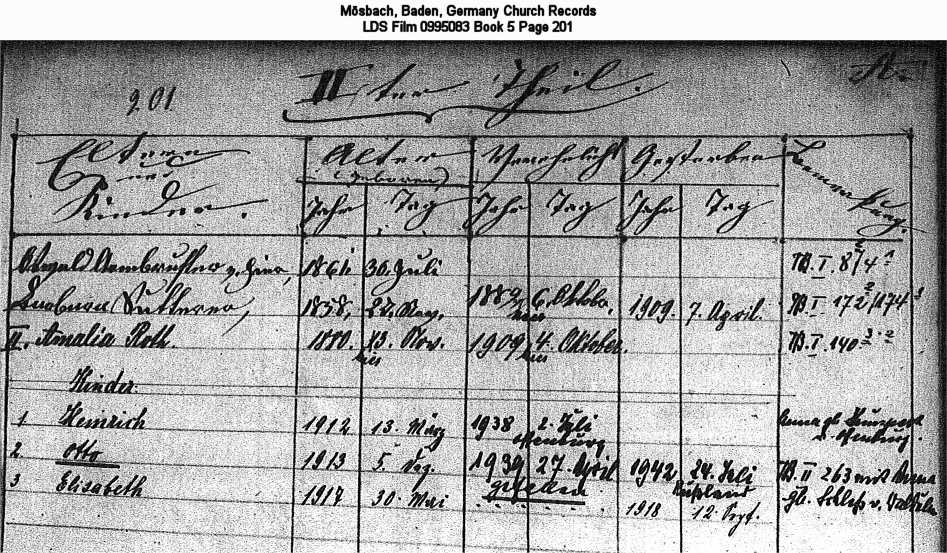 Mösbach, Baden, Germany Church Records
LDS Film 0995083 Book 5 Page 201
A.
201 IIter Theil.
Eltern und Kinder. Alter (geboren) Verehelicht Gestorben Bemerkung.
Jahr Tag Jahr Tag Jahr Tag
Armbruster v. hier, 30. Juli B. I. 87/4
Sutterer, 1858, 6. Oktober, 1909. 7. April. B. I 172/174
II. Amalia Roth. 1880. 13. Nov. 1909 4. Oktober. B. I. 140
Kinder.
1 Heinrich 1912 13. März 1938 2. Juli Anna gb.
Offenburg v. Offenburg.
2 Otto 1913 5. 1939 27. April 1942 24. Juli B. II 263 mit
Rußland
3 Elisabeth 1917 30. Mai 1918 12. Sept. gb. v.